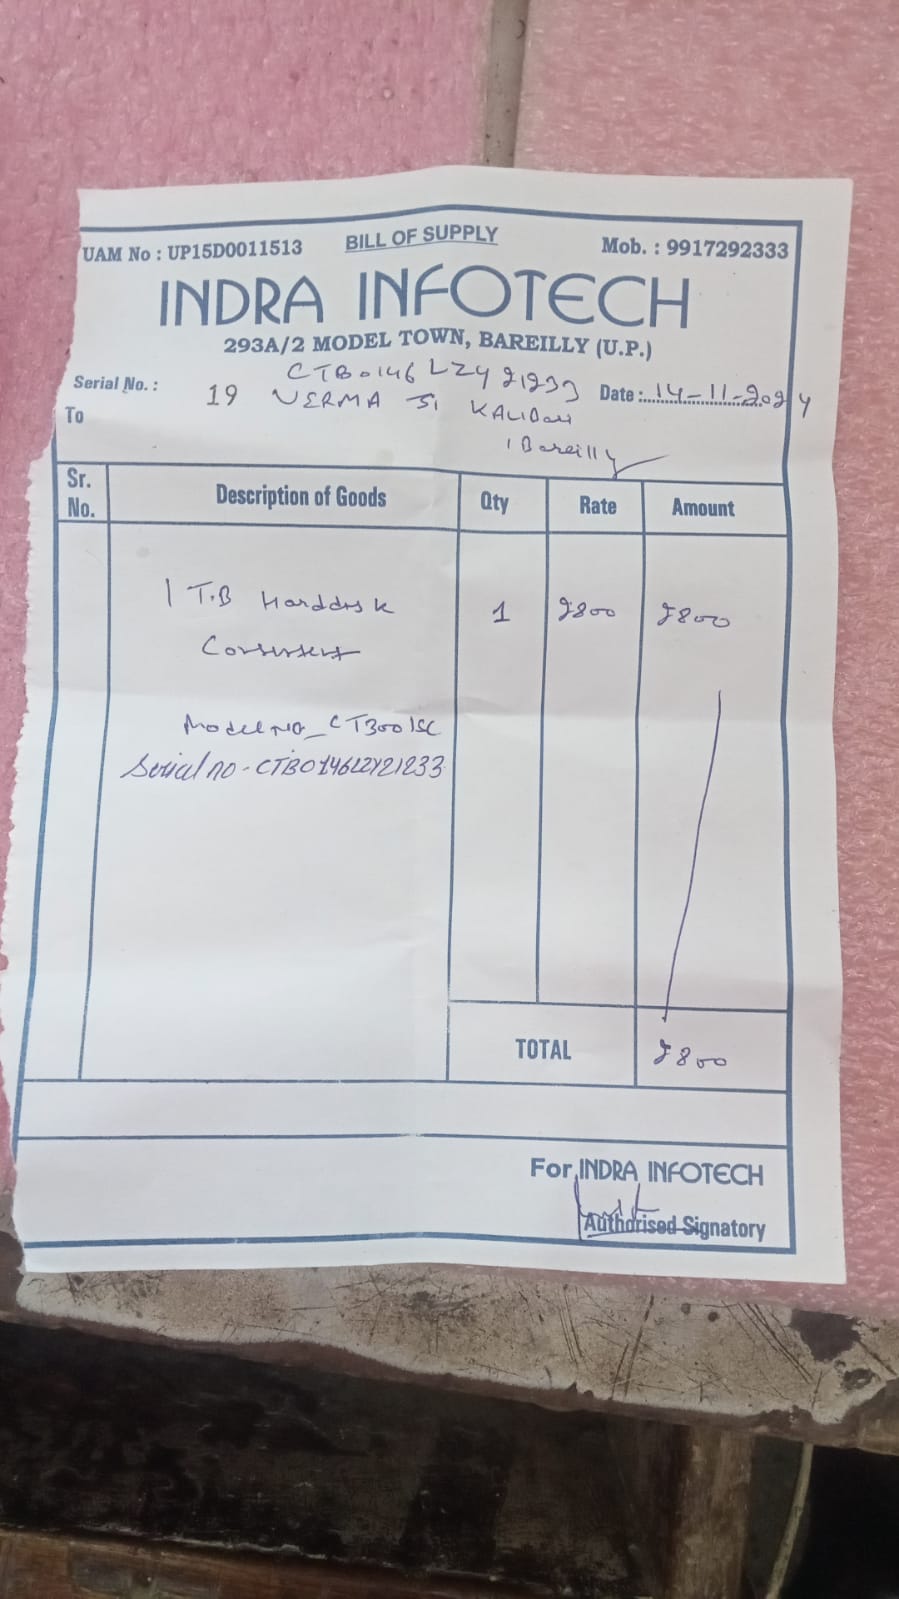 UAM No : UP15D0011513 BILL OF SUPPLY Mob. : 9917292333
INDRA INFOTECH
293A/2 MODEL TOWN, BAREILLY (U.P.)
CTB0146LZY21233
Serial No. : 19 VERMA Ji Date : 14-11-2024
To
Bareilly
Sr. No. Description of Goods Qty Rate Amount
1 T.B Harddisk 1 2800 2800
Model NO_CT3001SC
Serial no - CTB0146LZY21233
TOTAL 2800
For INDRA INFOTECH
Authorised Signatory